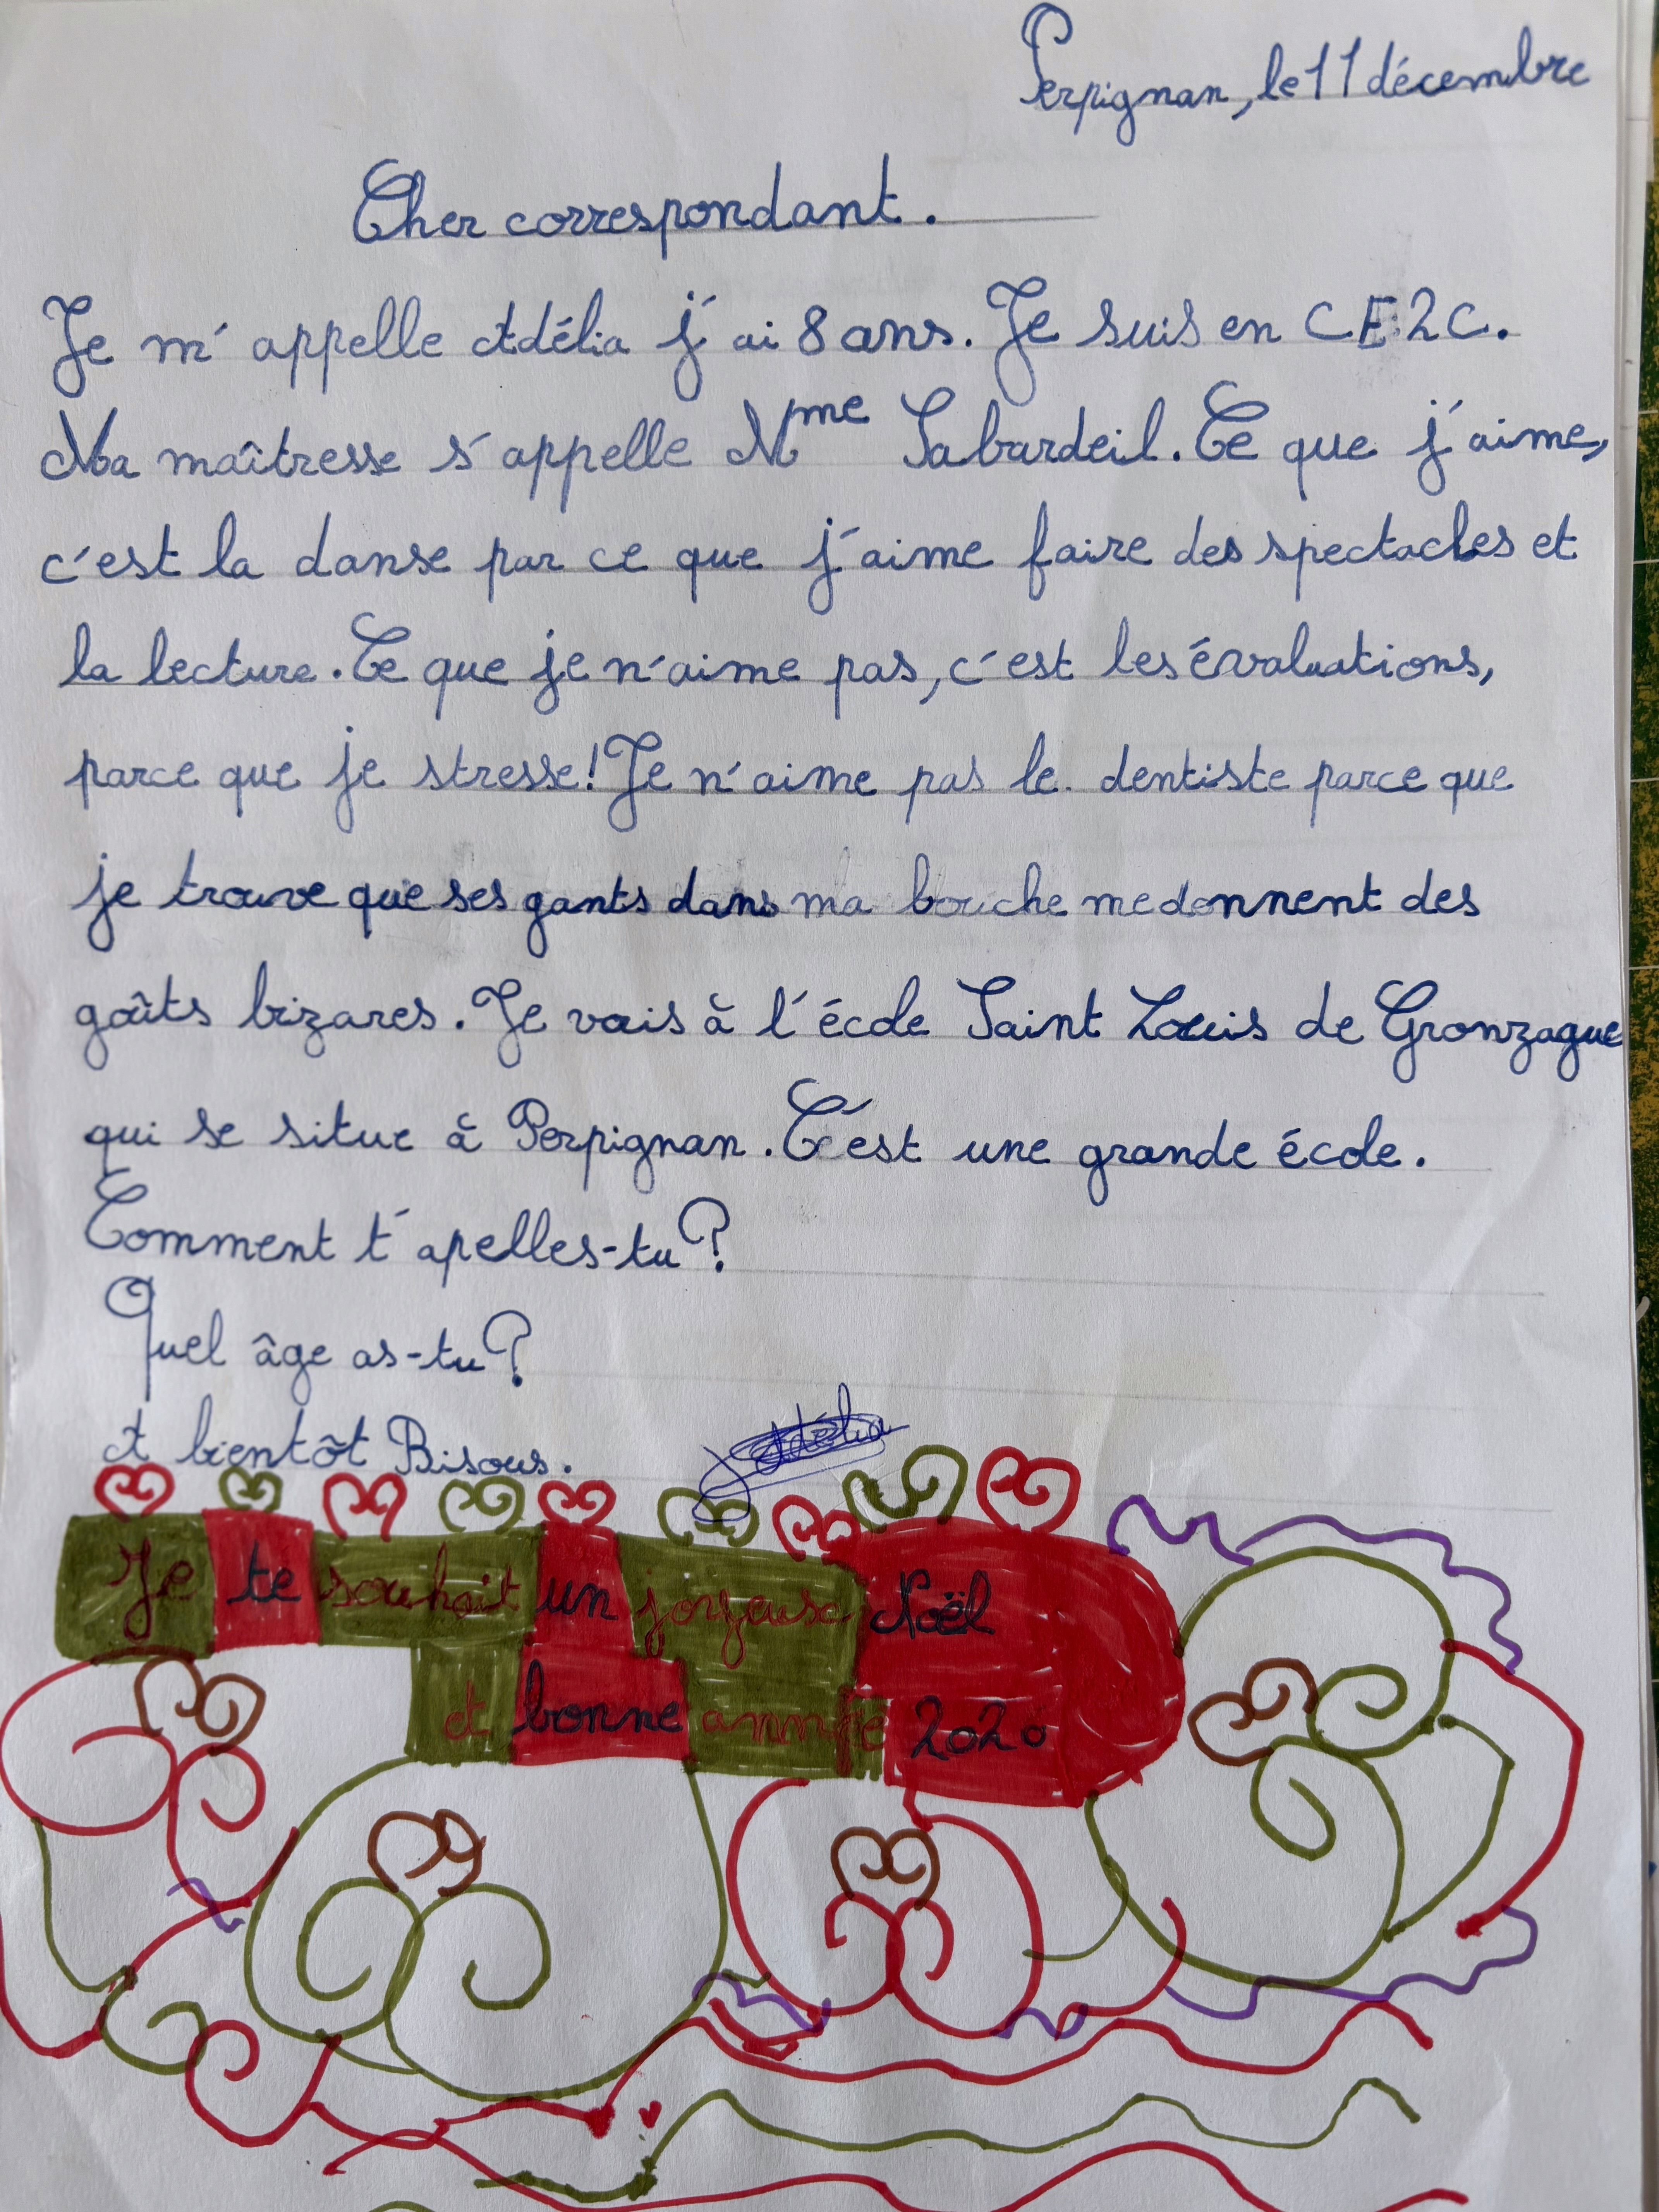 Perpignan, le 11 décembre
Cher correspondant.
Je m'appelle Adélia j'ai 8 ans. Je suis en CE2C.
Ma maîtresse s'appelle Mme Sabardeil. Ce que j'aime,
c'est la danse par ce que j'aime faire des spectacles et
la lecture. Ce que je n'aime pas, c'est les évaluations,
parce que je stresse! Je n'aime pas le dentiste parce que
je trouve que ses gants dans ma bouche me donnent des
goûts bizares. Je vais à l'école Saint Louis de Gronzague
qui se situe à Perpignan. C'est une grande école.
Comment t'apelles-tu?
Quel âge as-tu?
A bientôt Bisous.
Adélia
Je te souhait un joyeuse Noël
et bonne année 2020